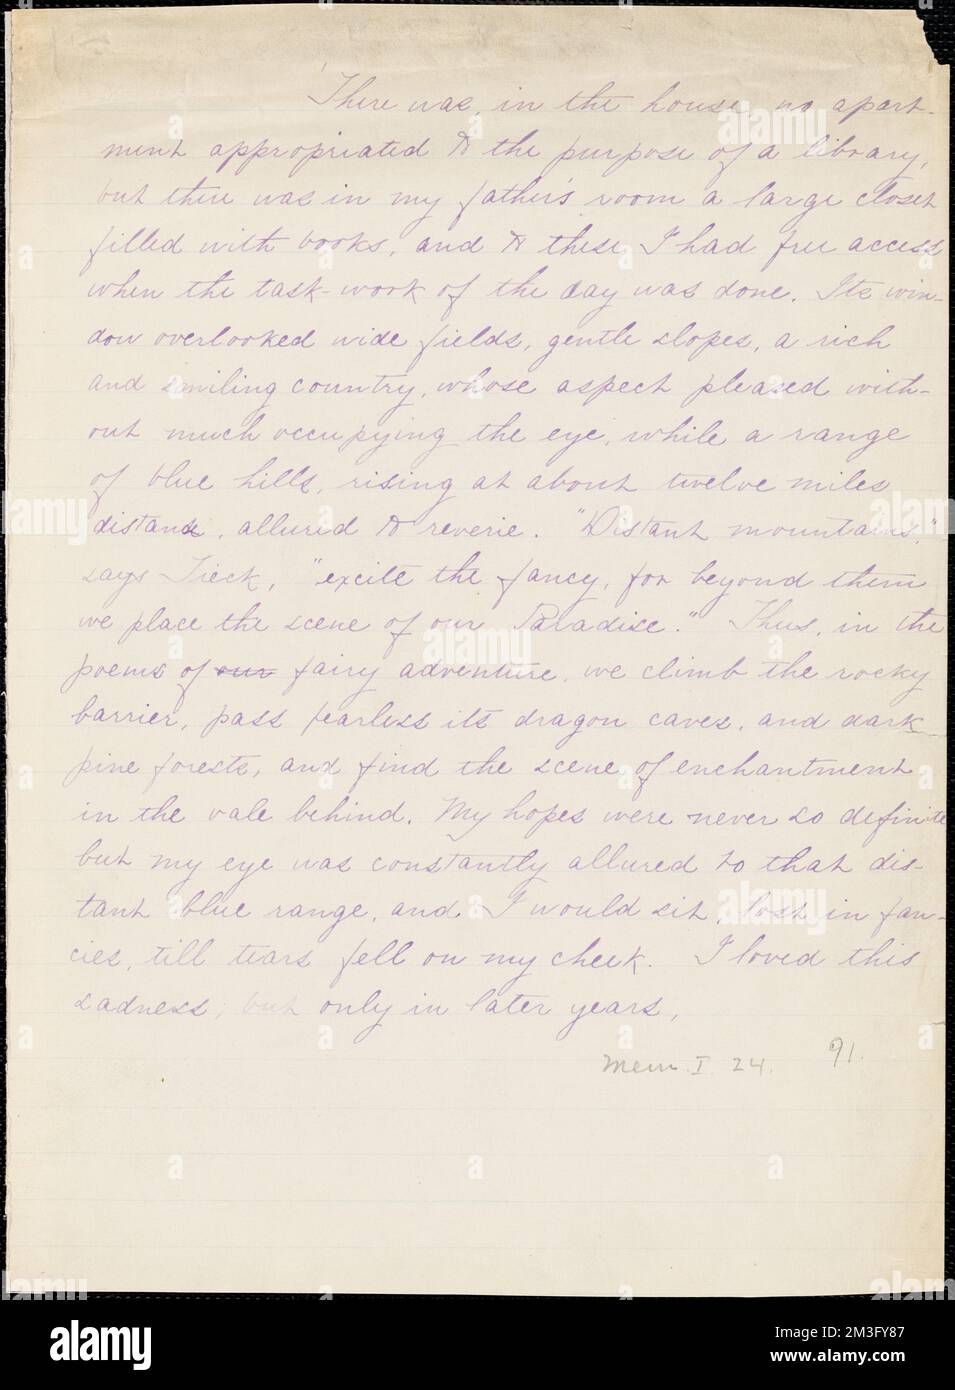 There was, in the house, no apart-
ment appropriated to the purpose of a library,
but there was in my father's room a large closet
filled with books, and to these I had free access
when the task-work of the day was done. Its win-
dow overlooked wide fields, gentle slopes, a rich
and smiling country, whose aspect pleased with-
out much occupying the eye, while a range
of blue hills, rising at about twelve miles
distance, allured to reverie. "Distant mountains,"
says Tieck, "excite the fancy, for beyond them
we place the scene of our Paradise." Thus, in the
poems of our fairy adventure, we climb the rocky
barrier, pass fearless its dragon caves, and dark
pine forests, and find the scene of enchantment
in the vale behind. My hopes were never so definite
but my eye was constantly allured to that dis-
tant blue range, and I would sit, lost in fan-
cies, till tears fell on my cheek. I loved this
sadness; but only in later years,
Mem. I. 24. 91.
alamy
Image ID: 2M3FY87
www.alamy.com